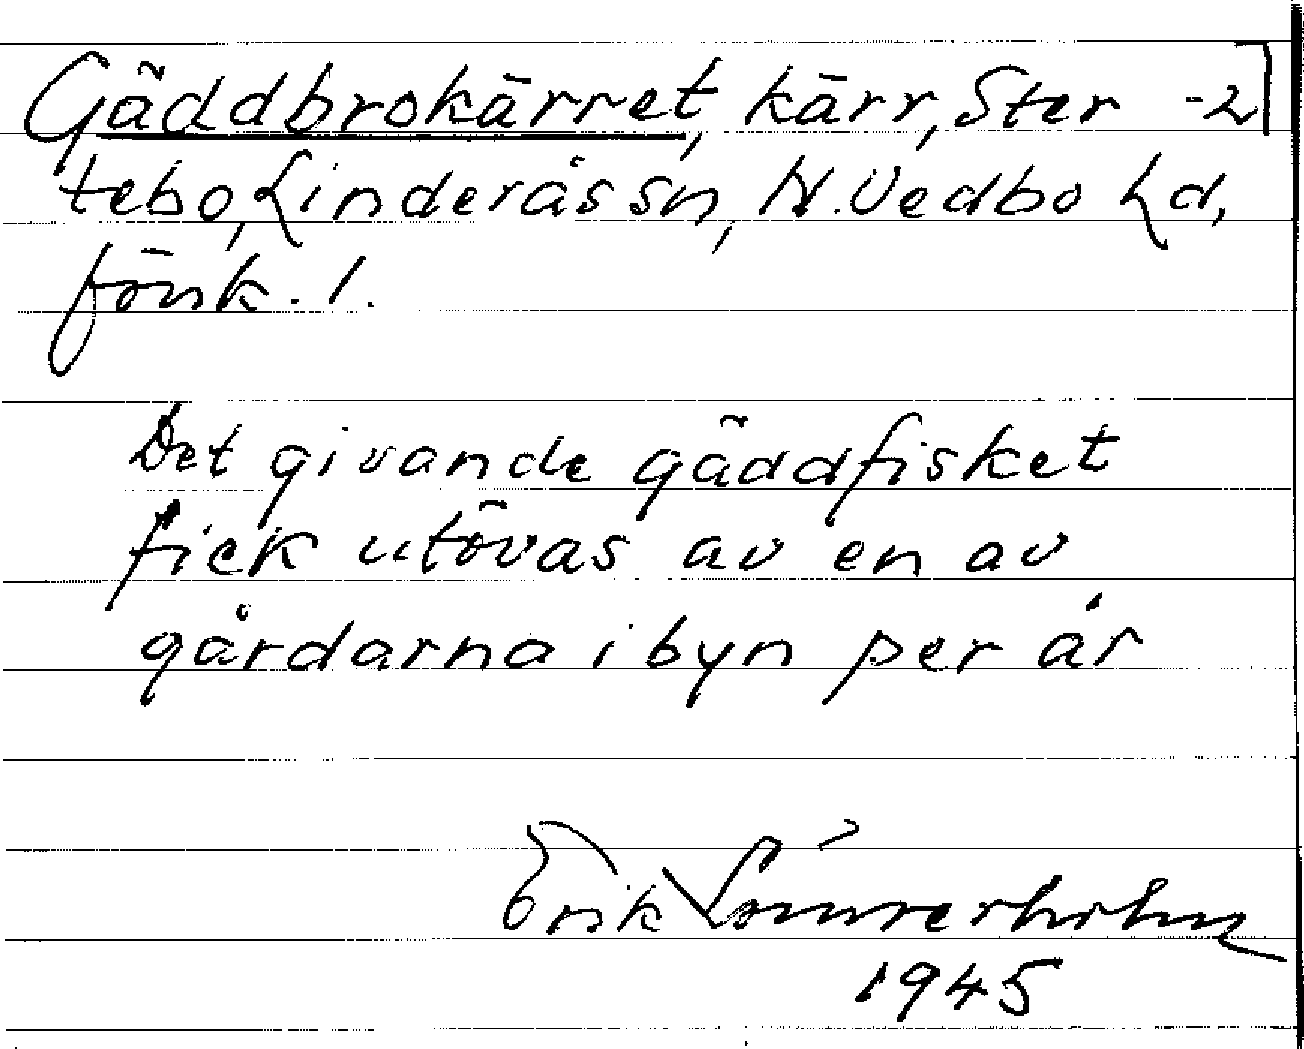 Gäddbrokärret, kärr, Ster -2
tebo, Linderås sn, N. Vedbo hd,
Jönk. l.
Det givande gäddfisket
fick utövas av en av
gårdarna i byn per år
Erik
1945